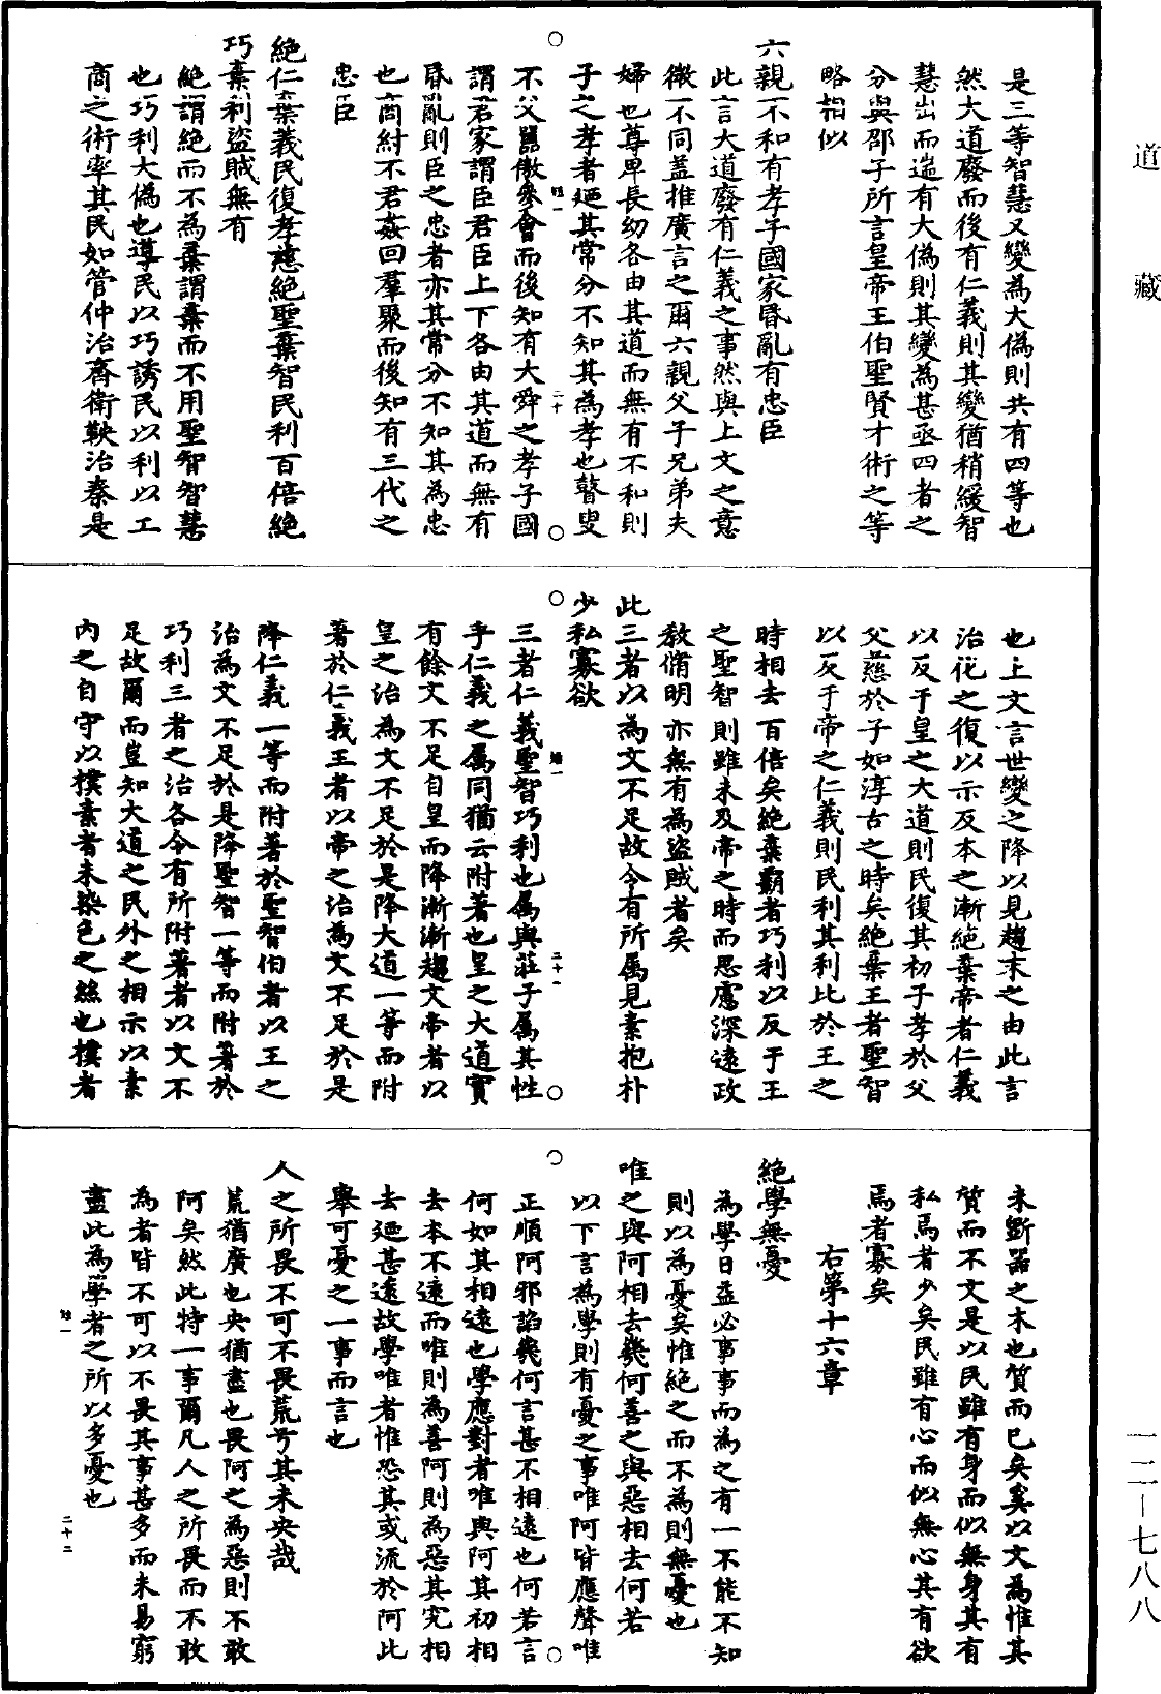 道藏
是三等智慧又變為大偽則共有四等也
然大道廢而後有仁義則其變猶稍緩智
慧出而遄有大偽則其變為甚亟四者之
分與邵子所言皇帝王伯聖賢才術之等
略相似
六親不和有孝子國家昏亂有忠臣
此言大道廢有仁義之事然與上文之意
微不同蓋推廣言之爾六親父子兄弟夫
婦也尊卑長幼各由其道而無有不和則
子之孝者廼其常分不知其為孝也瞽叟
不父嚚傲參會而後知有大舜之孝子國
謂君家謂臣君臣上下各由其道而無有
昏亂則臣之忠者亦其常分不知其為忠
也商紂不君姦回羣聚而後知有三代之
忠臣
絕仁棄義民復孝慈絕聖棄智民利百倍絕
巧棄利盜賊無有
絕謂絕而不為棄謂棄而不用聖智智慧
也巧利大偽也導民以巧誘民以利以工
商之術率其民如管仲治齊衛鞅治秦是
也上文言世變之降以見趨末之由此言
治化之復以示反本之漸絕棄帝者仁義
以反于皇之大道則民復其初子孝於父
父慈於子如淳古之時矣絕棄王者聖智
以反于帝之仁義則民利其利比於王之
時相去百倍矣絕棄霸者巧利以反于王
之聖智則雖未及帝之時而思慮深遠政
教脩明亦無有為盜賊者矣
此三者以為文不足故令有所屬見素抱朴
少私寡欲
三者仁義聖智巧利也屬與莊子屬其性
乎仁義之屬同猶云附著也皇之大道實
有餘文不足自皇而降漸漸趨文帝者以
皇之治為文不足於是降大道一等而附
著於仁義王者以帝之治為文不足於是
降仁義一等而附著於聖智伯者以王之
治為文不足於是降聖智一等而附著於
巧利三者之治各令有所附著者以文不
足故爾而豈知大道之民外之相示以素
內之自守以樸素者未染色之絲也樸者
未斲器之木也質而已矣奚以文為惟其
質而不文是以民雖有身而似無身其有
私焉者少矣民雖有心而似無心其有欲
焉者寡矣
右第十六章
絕學無憂
為學日益必事事而為之有一不能不知
則以為憂矣惟絕之而不為則無憂也
唯之與阿相去幾何善之與惡相去何若
以下言為學則有憂之事唯阿皆應聲唯
正順阿邪諂幾何言甚不相遠也何若言
何如其相遠也學應對者唯與阿其初相
去本不遠而唯則為善阿則為惡其究相
去廼甚遠故學唯者惟恐其或流於阿此
舉可憂之一事而言也
人之所畏不可不畏荒兮其未央哉
荒猶廣也央猶盡也畏阿之為惡則不敢
阿矣然此特一事爾凡人之所畏而不敢
為者皆不可以不畏其事甚多而未易窮
盡此為學者之所以多憂也
二十
二十一
二十二
一二—七八八